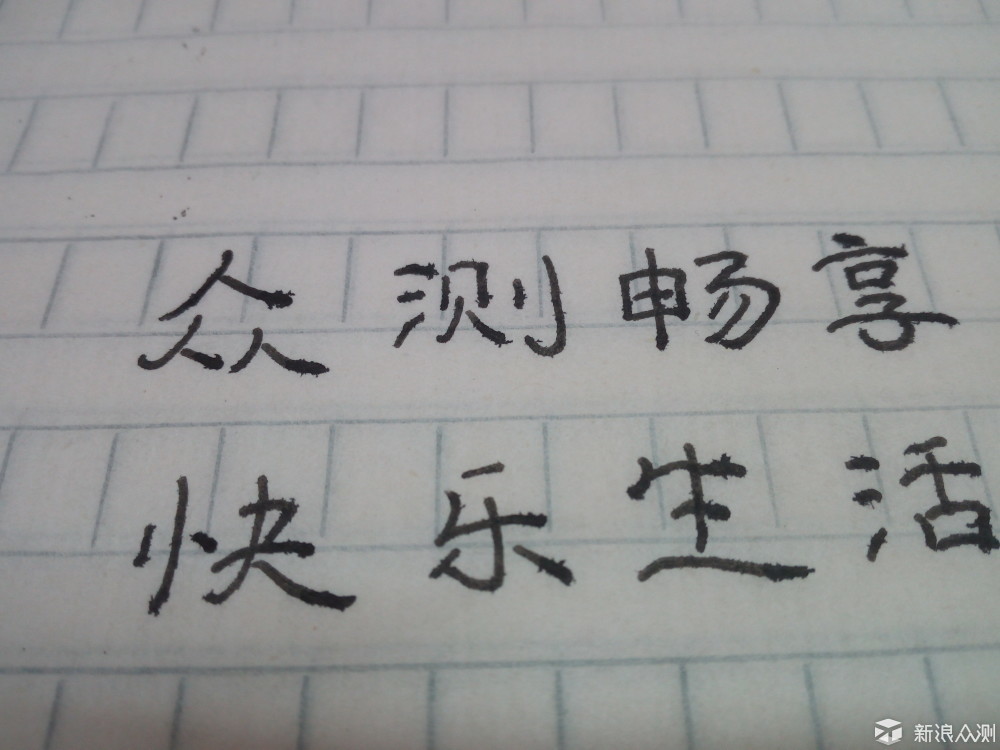 众测畅享
快乐生活
新浪众测